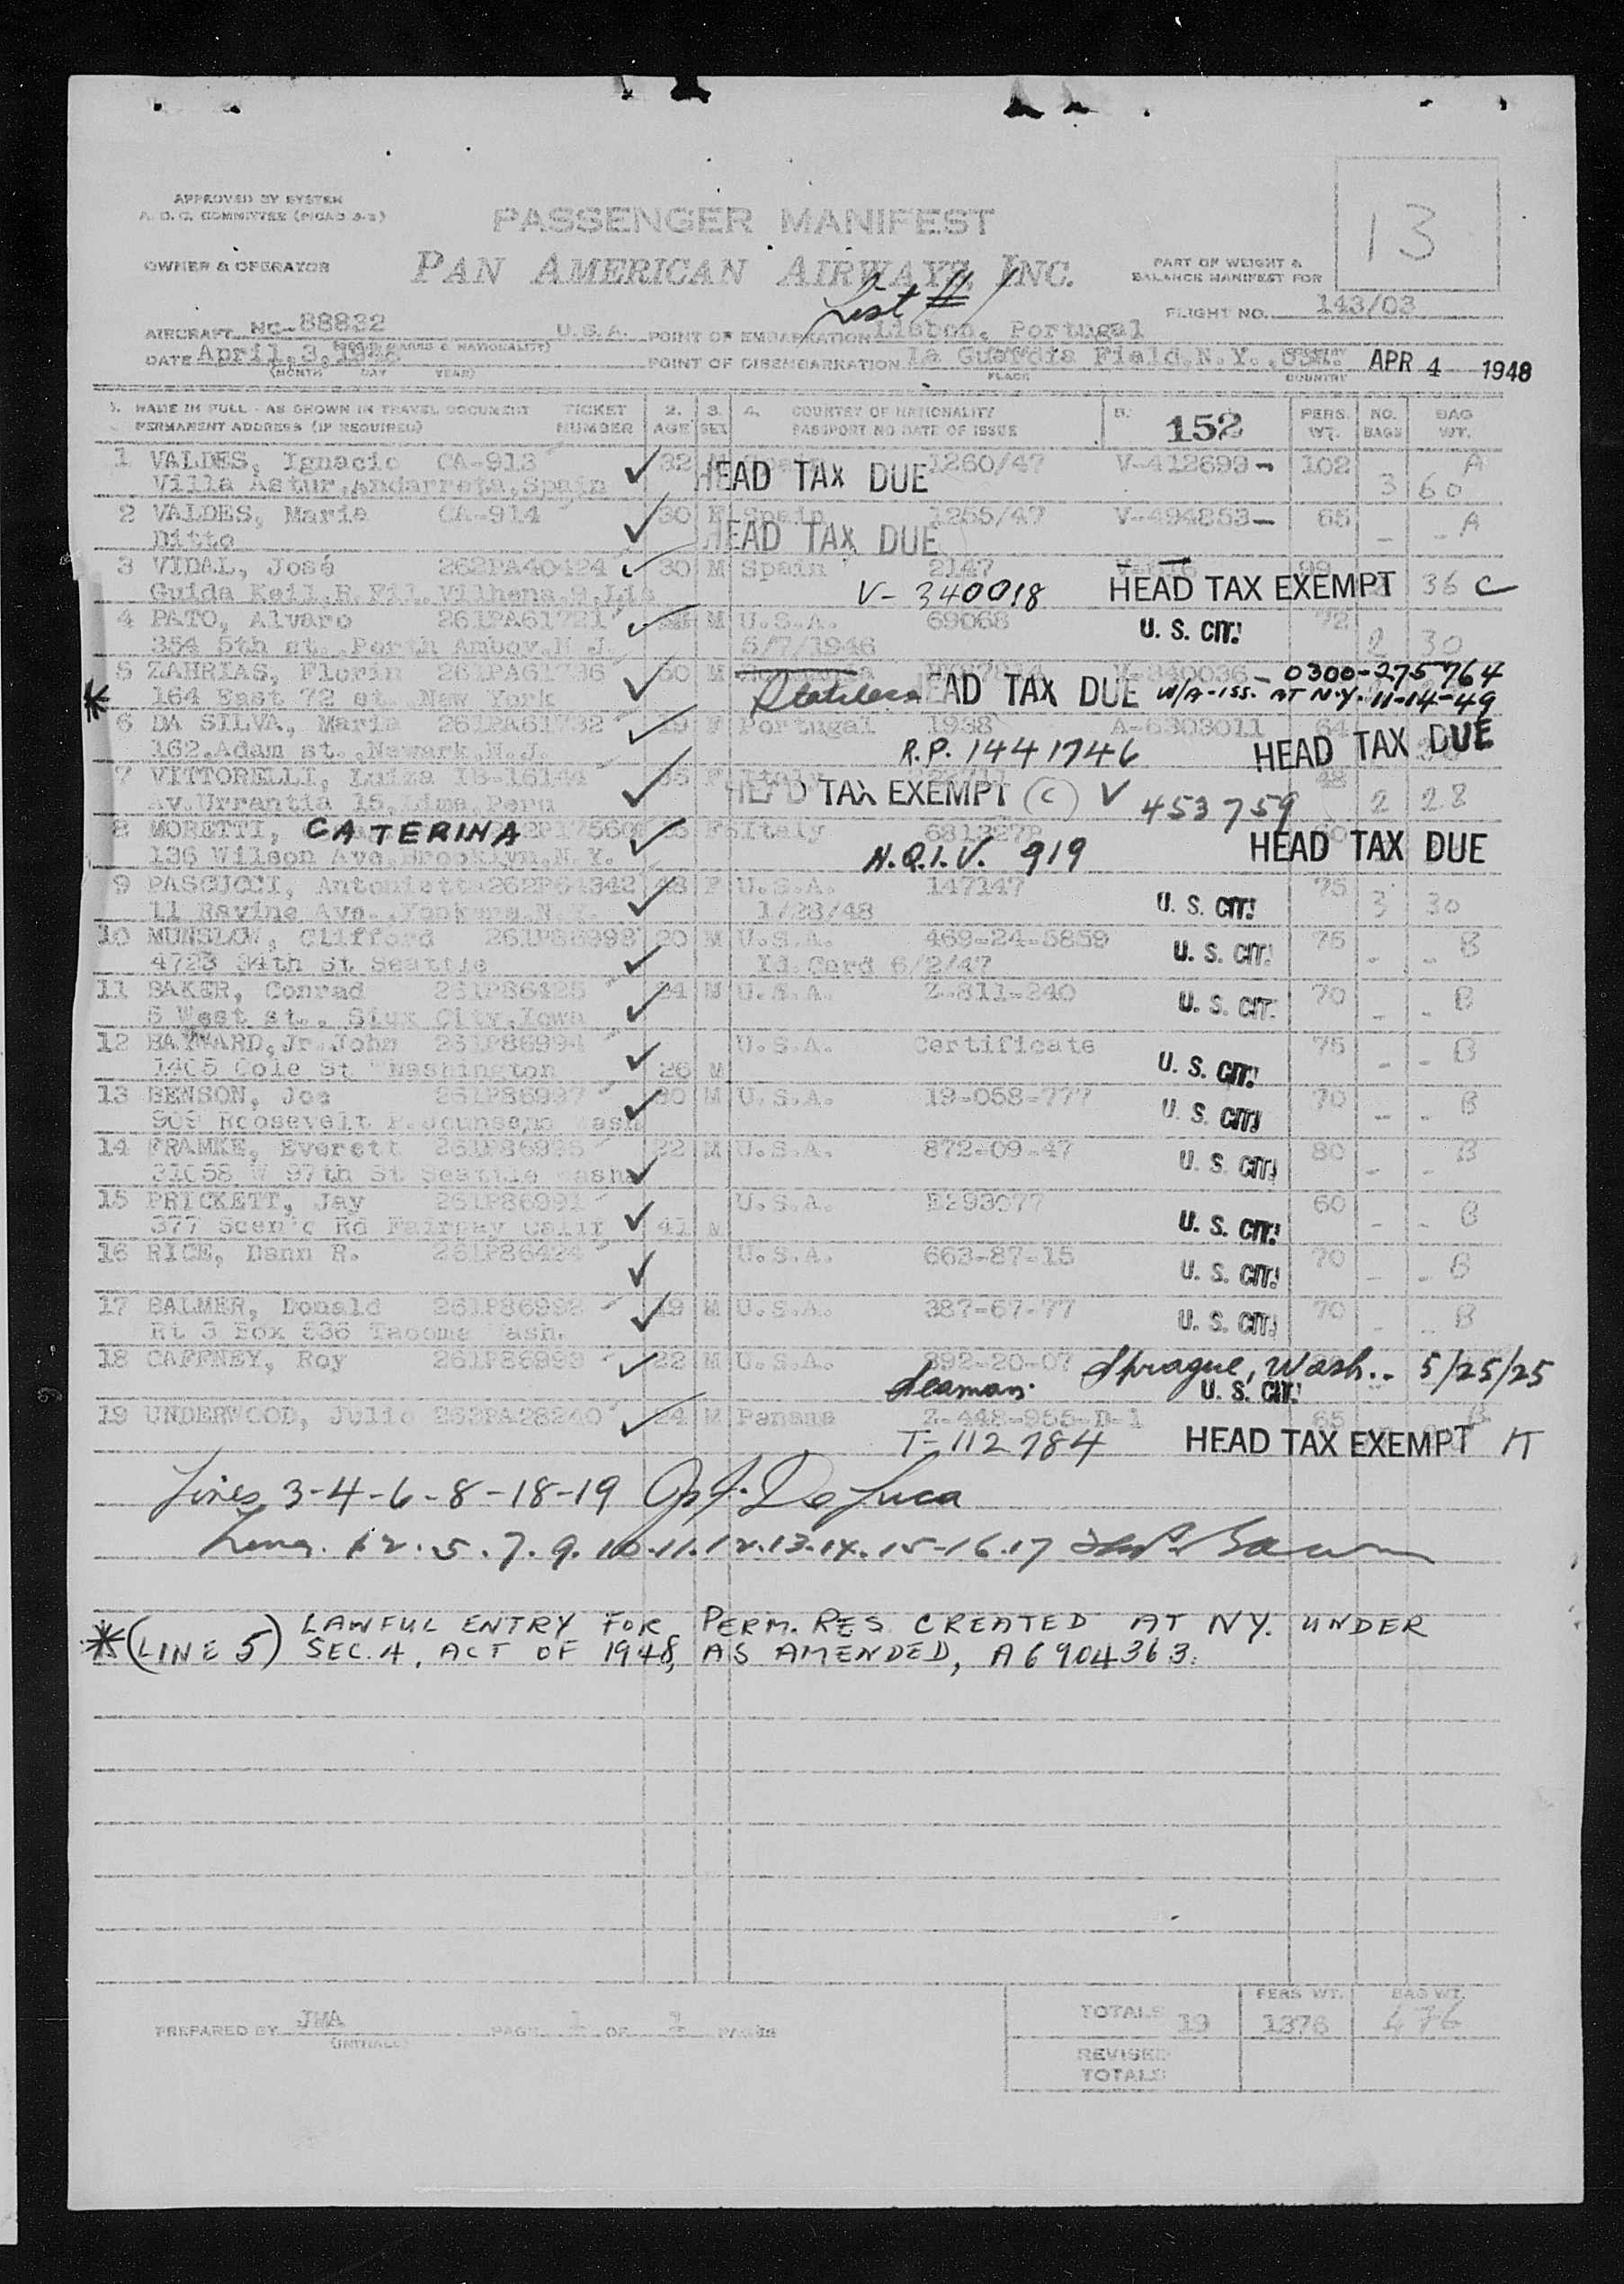 APPROVED BY SYSTEM
A. O. C. COMMITTEE (PICAO 3-2)
PASSENGER MANIFEST
13
OWNER & OPERATOR
PAN AMERICAN AIRWAYS, INC.
PART OF WEIGHT &
BALANCE MANIFEST FOR
List # 1
FLIGHT NO. 143/03
AIRCRAFT NC-88832 U.S.A. POINT OF EMBARKATION Lisbon, Portugal
DATE April, 3, 1948 POINT OF DISEMBARKATION La Guardia Field, N.Y., APR 4 1948
(MONTH DAY YEAR) PLACE COUNTRY
1. NAME IN FULL - AS SHOWN IN TRAVEL DOCUMENT TICKET 2. 3. 4. COUNTRY OF NATIONALITY 5. 152 PERS. NO. BAG
PERMANENT ADDRESS (IF REQUIRED) NUMBER AGE SEX PASSPORT NO DATE OF ISSUE WT. BAGS WT.
1 VALDES, Ignacio CA-913 32 M Spain 1260/47 V-412699- 102 A
Villa Astur, Andarreta, Spain HEAD TAX DUE 3 60
2 VALDES, Marie CA-914 30 F Spain 1255/47 V-494853- 65 A
Ditto HEAD TAX DUE
3 VIDAL, José 262PA40424 30 M Spain 2147 99
Guida Keil, R. Fil. Vilhena, 9, Lis V-340018 HEAD TAX EXEMPT 36 C
4 PATO, Alvaro 261PA61721 M U.S.A. 69068 U. S. CIT. 72
354 5th st., Perth Amboy, N.J. 5/7/1946 2 30
5 ZAHRIAS, Florin 261PA61736 50 M V-340036 - 0300-275764
164 East 72 st. New York Stateless HEAD TAX DUE W/A-ISS. AT N.Y. 11-14-49
6 DA SILVA, Maria 261PA61732 19 F Portugal 1938 A-6303011 64
162, Adam st., Newark, N.J. R.P. 1441746 HEAD TAX DUE
7 VITTORELLI, Luiza IB-16144 35 F Italy 48
Av. Urrantia 15, Lima, Peru HEAD TAX EXEMPT (C) V 453759 2 28
8 MORETTI, CATERINA F Italy
136 Wilson Ave, Brooklyn, N.Y. N.Q.I.V. 919 HEAD TAX DUE
9 PASCUCCI, Antonietta 262P64342 48 F U.S.A. 147147 75
11 Ravine Ave., Yonkers, N.Y. 1/28/48 U. S. CIT. 3 30
10 MUNSLOW, Clifford 261P86998 20 M U.S.A. 469-24-5859 75 B
4723 34th St Seattle Id. Card 6/2/47 U. S. CIT.
11 BAKER, Conrad 261P86425 24 M U.S.A. Z-811-240 U. S. CIT. 70 B
5 West st., Siux City, Iowa
12 BAYNARD, Jr. John 261P86994 U.S.A. Certificate 75 B
1405 Cole St Washington 26 M U. S. CIT.
13 BENSON, Joe 261P86997 30 M U.S.A. 19-058-777 70 B
909 Roosevelt Wash U. S. CIT.
14 FRAMKE, Everett 261P86995 22 M U.S.A. 872-09-47 80 B
31058 W 97th St Seattle Wash U. S. CIT.
15 PRICKETT, Jay 261P86991 U.S.A. E293077 60
377 Scenic Rd Fairfay Calif 41 M U. S. CIT. B
16 RICE, Dann R. 261P86424 U.S.A. 663-87-15 70
U. S. CIT. B
17 BALMER, Donald 261P86992 19 M U.S.A. 387-67-77 70
Rt 3 Box 836 Tacoma Wash. U. S. CIT. B
18 CAFFNEY, Roy 261P86999 22 M U.S.A. 392-20-07 Sprague, Wash.. 5/25/25
Seaman U. S. CIT.
19 UNDERWOOD, Julio 262PA28240 24 M Panama Z-448-955-D-1 65 B
T-112784 HEAD TAX EXEMPT IT
Lines 3-4-6-8-18-19 De Luca
Lines. 1 2. 5. 7. 9. 10. 11. 12. 13. 14. 15-16.17
* (LINE 5) LAWFUL ENTRY FOR PERM. RES. CREATED AT NY. UNDER
SEC. 4, ACT OF 1948, AS AMENDED, A6904363.
PERS WT. BAG WT.
PREPARED BY JMA PAGE 1 OF 1 PAGES TOTALS 19 1376 476
(INITIALS)
REVISED
TOTALS